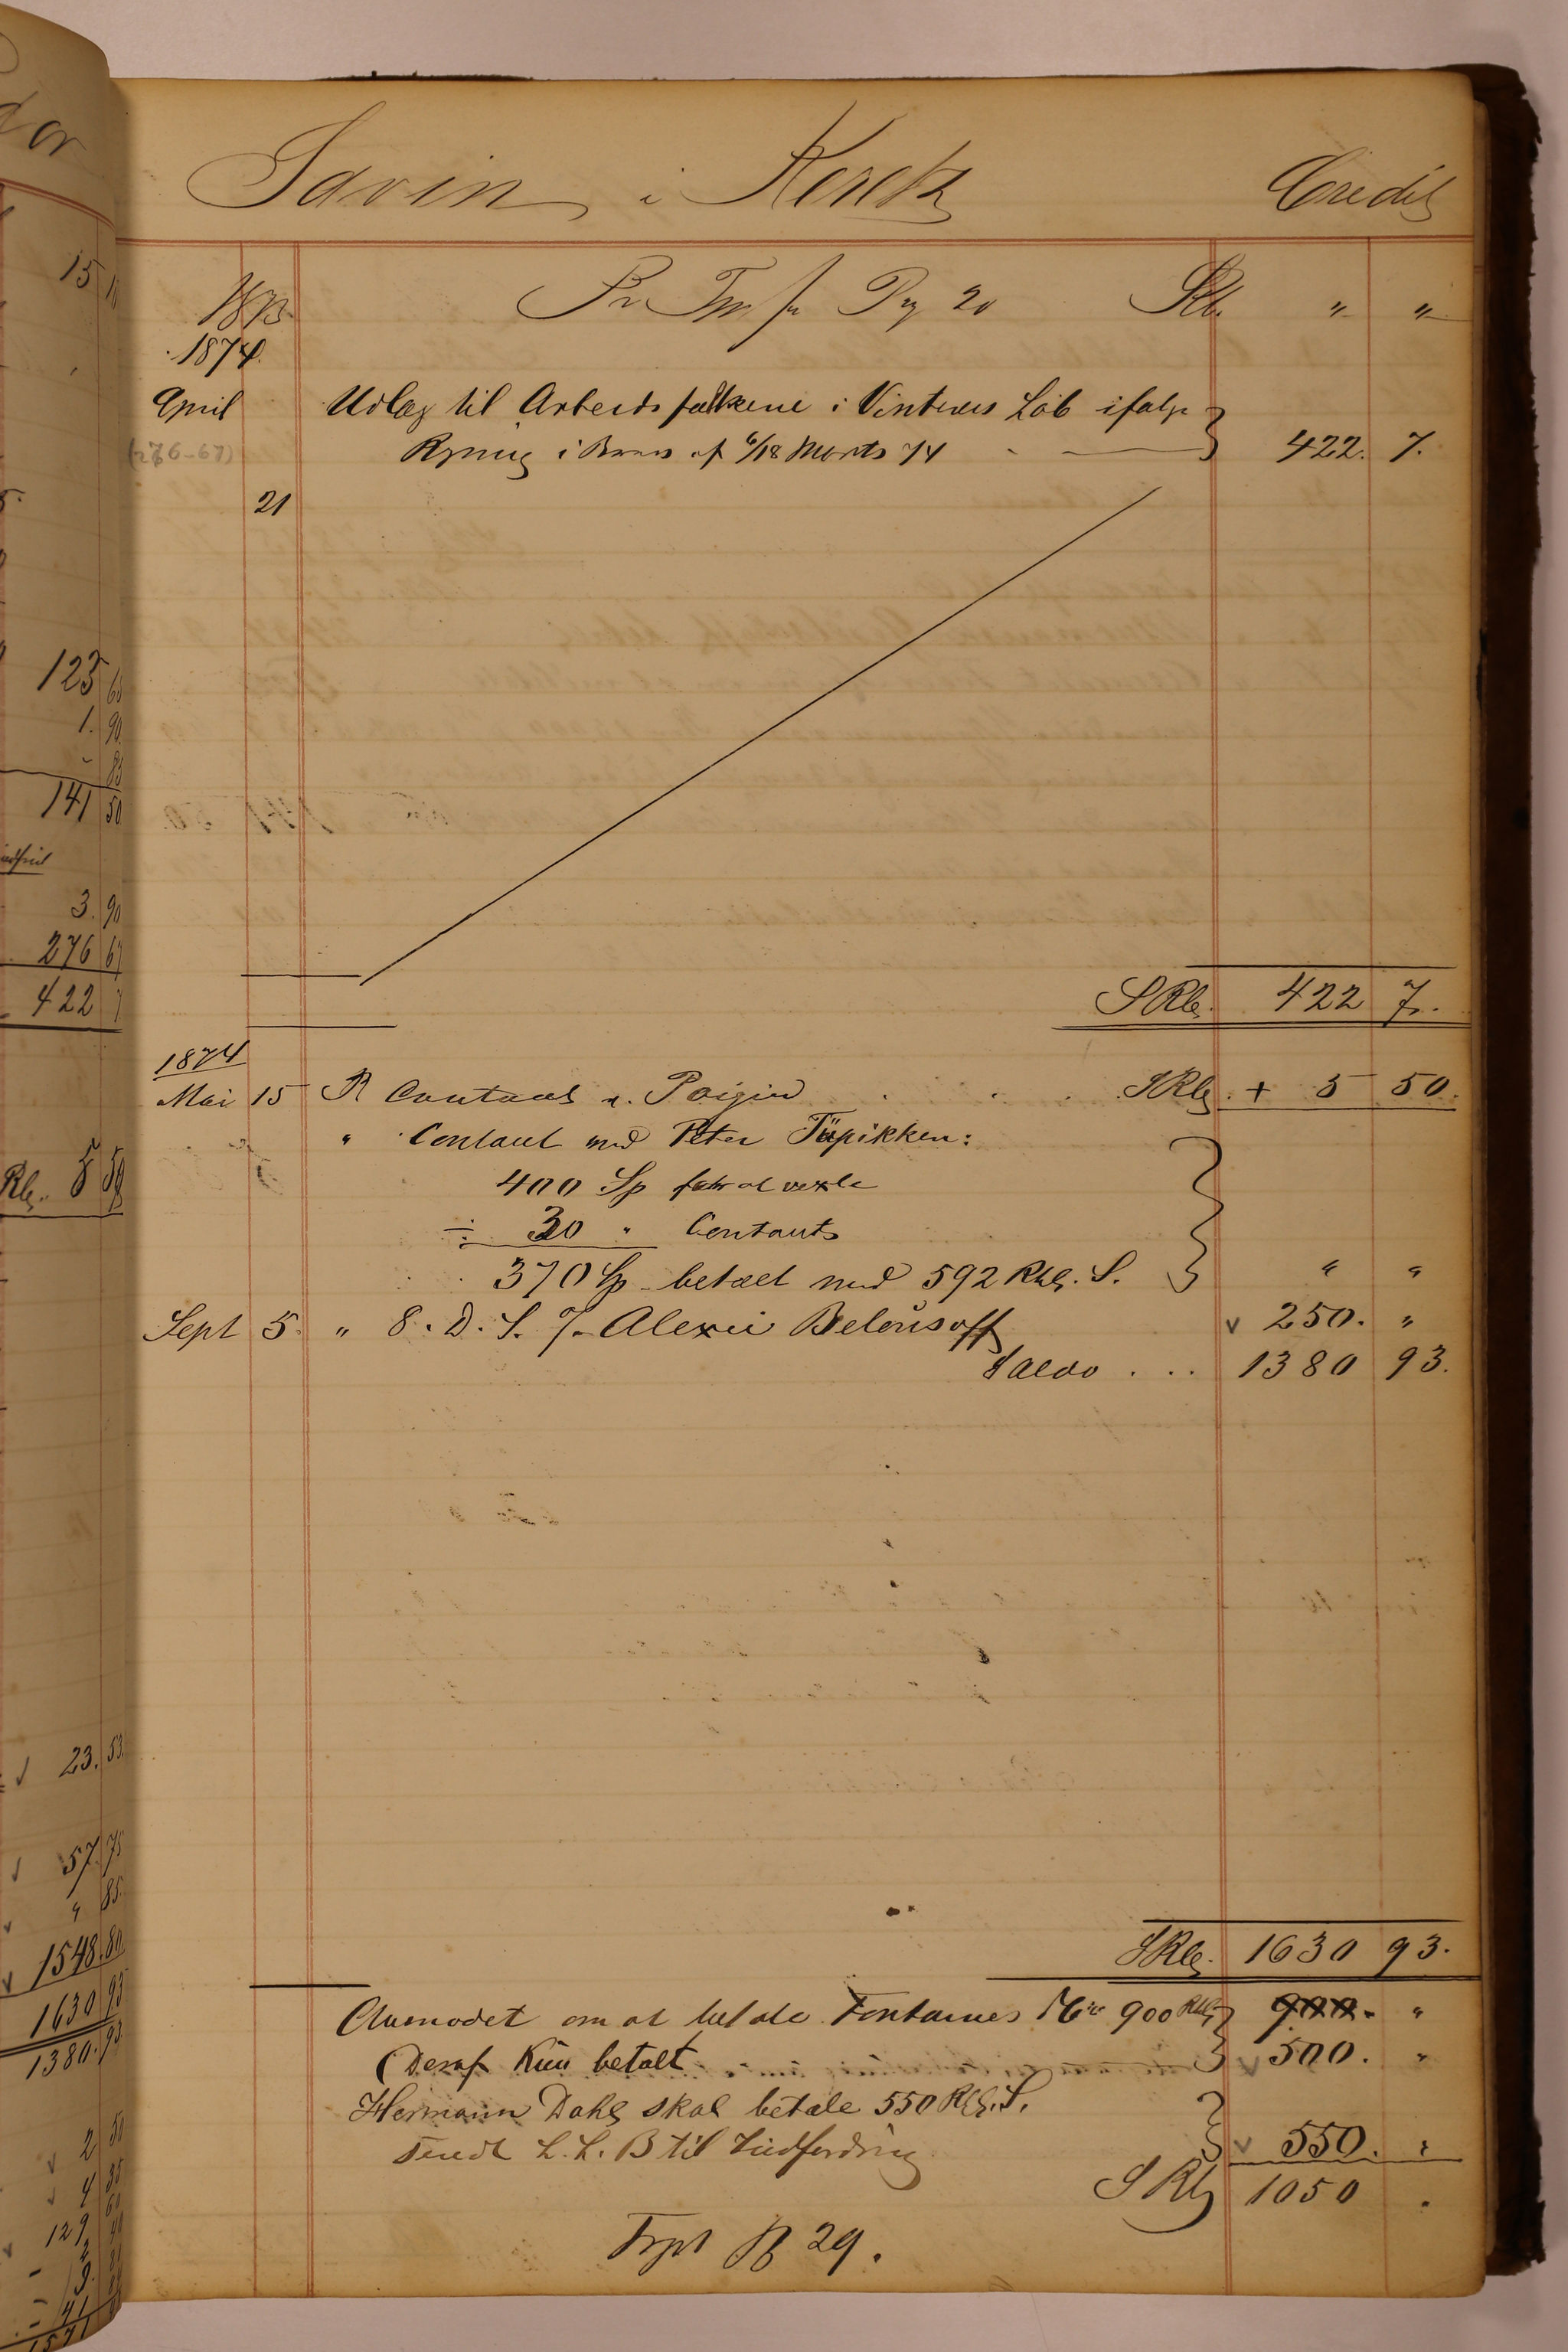 Savin i Keretz Credit
1873 Pr Trp fr Pag 20 SRb. " "
1874.
April Udlæg til Arbeidsfolkene i Vinterens Löb ifølge
(276-67) Regning i Brev af 6/18 Marts 74 - 422. 7.
21
SRb. 422 7.
1874
Mai 15 Pr Contant v. Poigin . . . SRb. + 5 50.
" Contant med Peter Tüpikken:
400 Sp for at vexle
÷ 30 " Contants
370 Sp betalt med 592 Rbl. S. " "
Sept 5. " 8. D. S. T. Alexei Belousoff v 250. "
Saldo . . . 1380 93.
SRb. 1630 93.
Anmodet om at betale Fontaines 900 Rbl 900. "
(Deraf Kun betalt v 500. "
Hermann Dahl skal betale 550 Rbl. S.
sendt L. L. B til Indfordring v 550. "
SRb 1050 .
Trpt Pg 29.
15
123 60
1. 90
" 83
141 50
3. 90
276 67
422 7
Rb. 5 50
v 23. 53
v 57. 75
v " 85.
v 1548. 80
1630 93
1380. 93
v 2 50
v 4 85
v 129